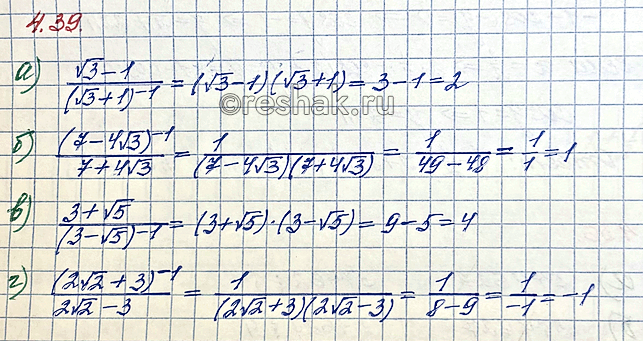 4.39.
а) (√3-1)/(√3+1)^-1 = (√3-1)(√3+1) = 3-1=2
©reshak.ru
б) (7-4√3)^-1/(7+4√3) = 1/((7-4√3)(7+4√3)) = 1/(49-48) = 1/1 = 1
в) (3+√5)/(3-√5)^-1 = (3+√5)·(3-√5) = 9-5=4
г) (2√2+3)^-1/(2√2-3) = 1/((2√2+3)(2√2-3)) = 1/(8-9) = 1/-1 = -1